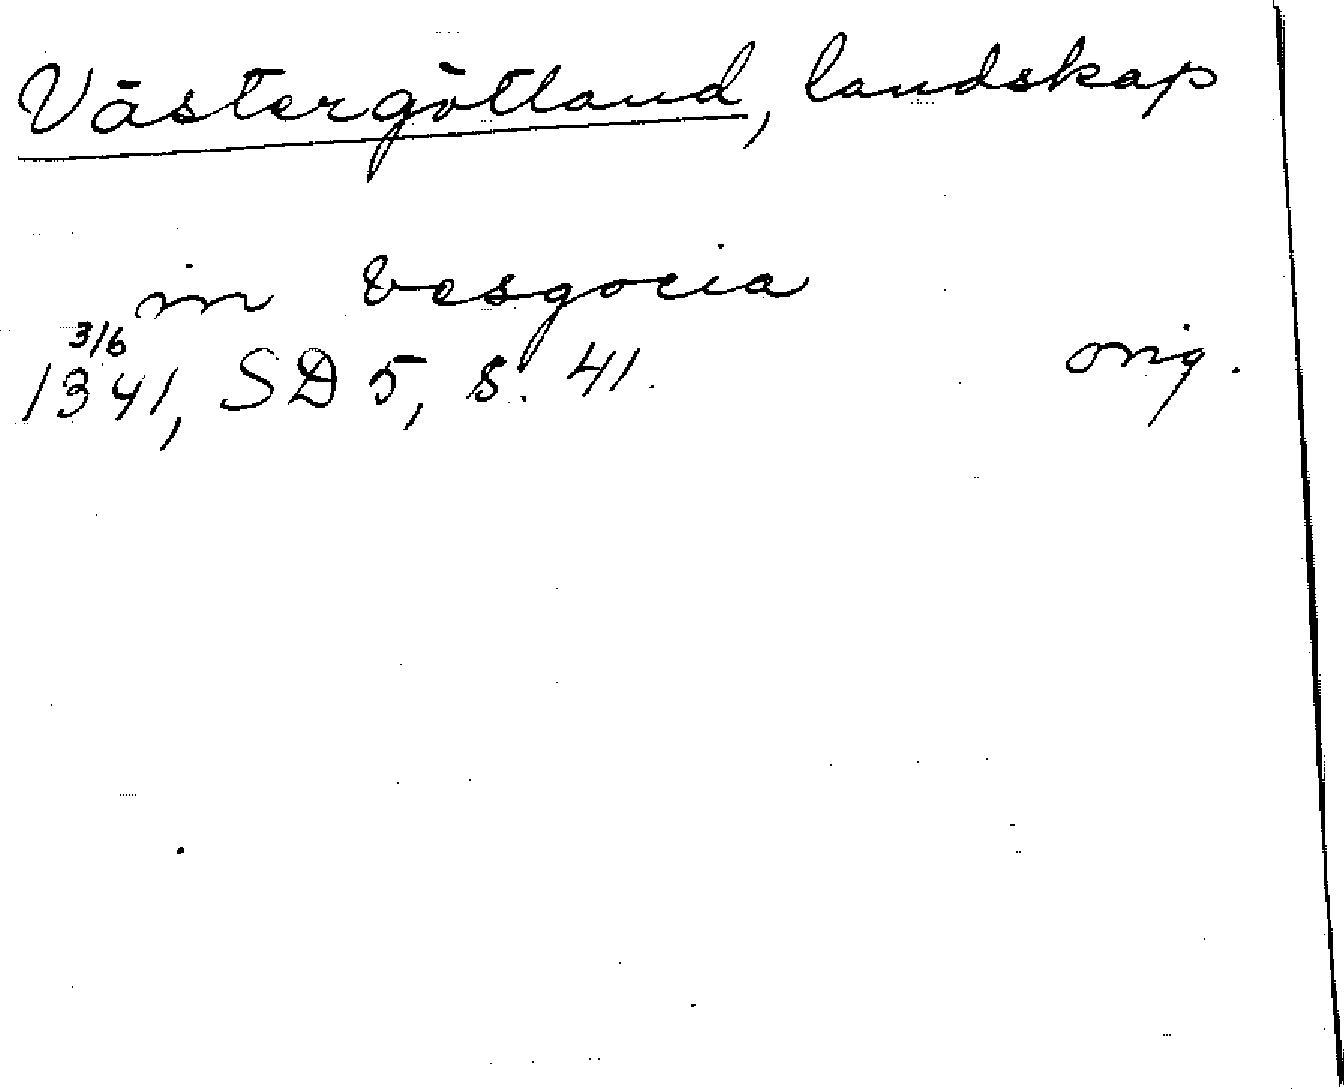 Västergötland, landskap
in Vesgocia
3/6
1341, SD 5, s. 41. orig.